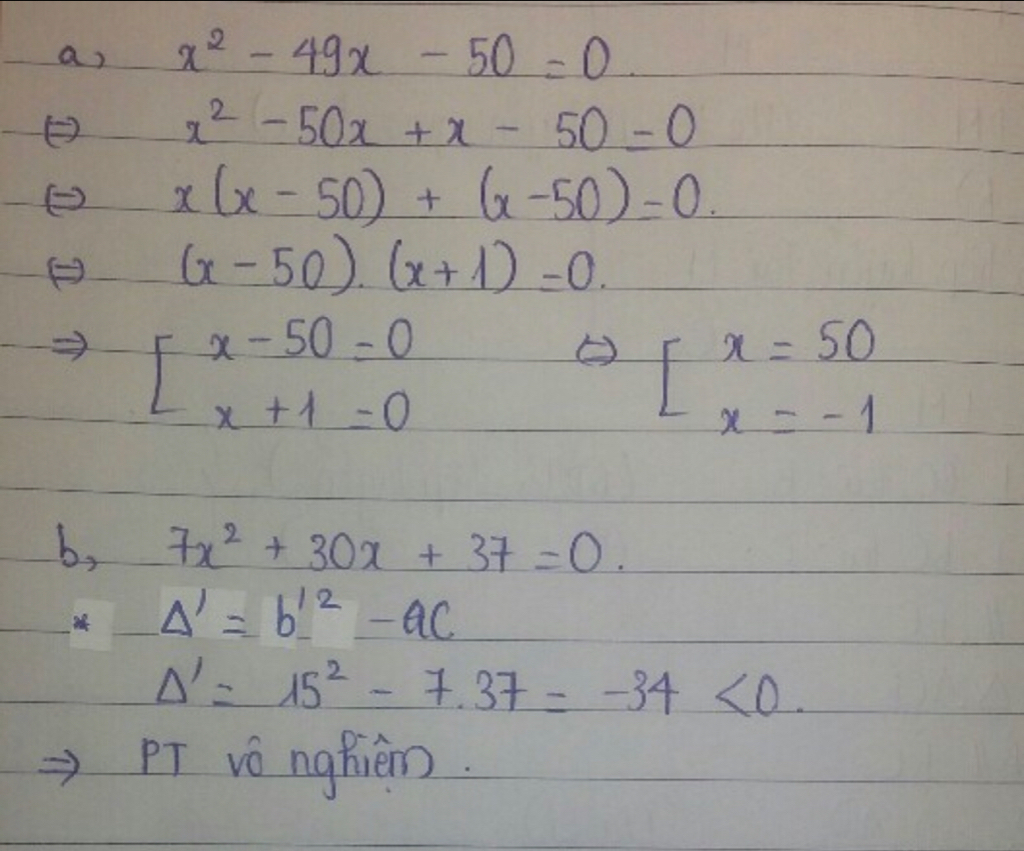 a, x² - 49x - 50 = 0.
⇔ x² - 50x + x - 50 = 0
⇔ x(x - 50) + (x - 50) = 0.
⇔ (x - 50).(x + 1) = 0.
⇒ [ x - 50 = 0 ⇔ [ x = 50
x + 1 = 0 x = -1
b, 7x² + 30x + 37 = 0.
* Δ' = b'² - ac
Δ' = 15² - 7.37 = -34 < 0.
⇒ PT vô nghiệm.